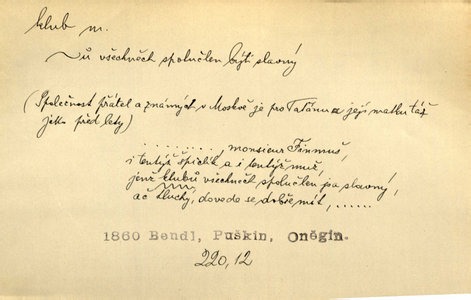 klub m.
~ů všechněch spoluúčlen býti slavný
(Společnost přátel a známých v Moskvě je pro Taťánu a její matku táž
jako před lety)
. . . . . . . . . . , monsieur Finmuš,
i tentýž špiclík a i tentýž muž,
jenž klubů všechněch spoluúčlen jsa slavný,
ač hluchý, dovede se dobře mít, . . . . . .
1860 Bendl, Puškin, Oněgin.
220,12